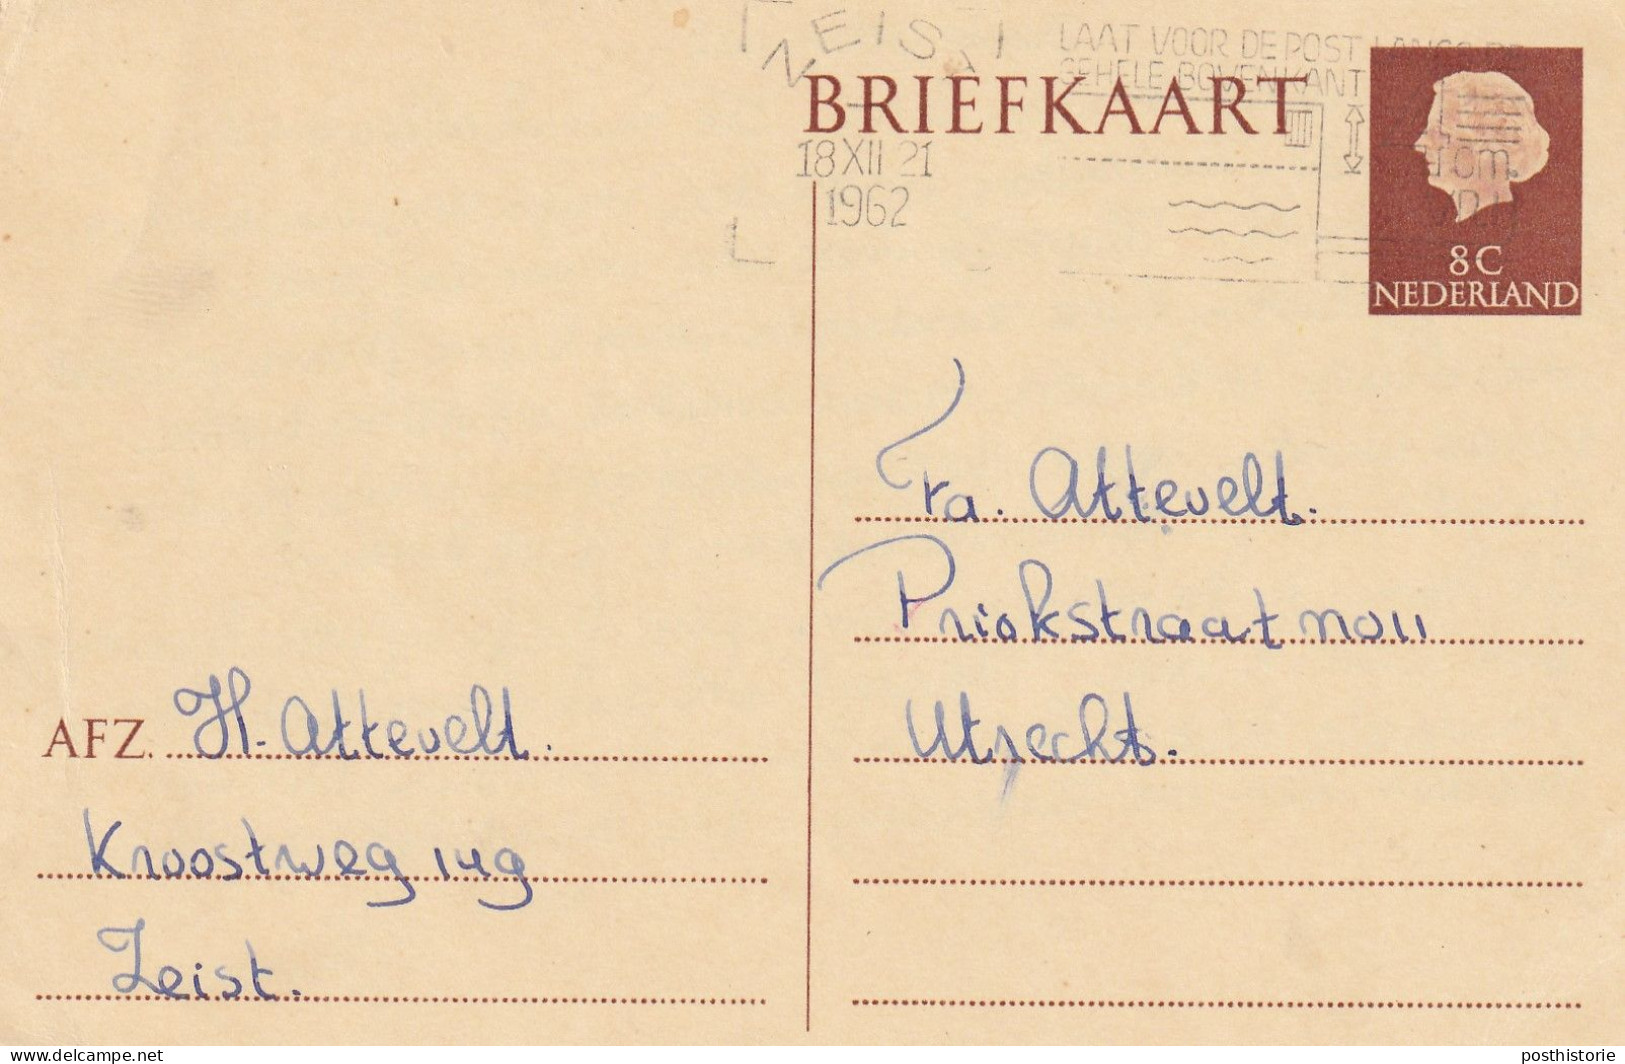 ZEIST
LAAT VOOR DE POST LANGS DE
GEHELE BOVENKANT
BRIEFKAART
18 XII 21
1962
cm.
8 C
NEDERLAND
Fa. Attevelt.
Priokstraat no 11
Utrecht.
AFZ. H. Attevelt.
Kroostweg 149
Zeist.
posthistorie
www.delcampe.net